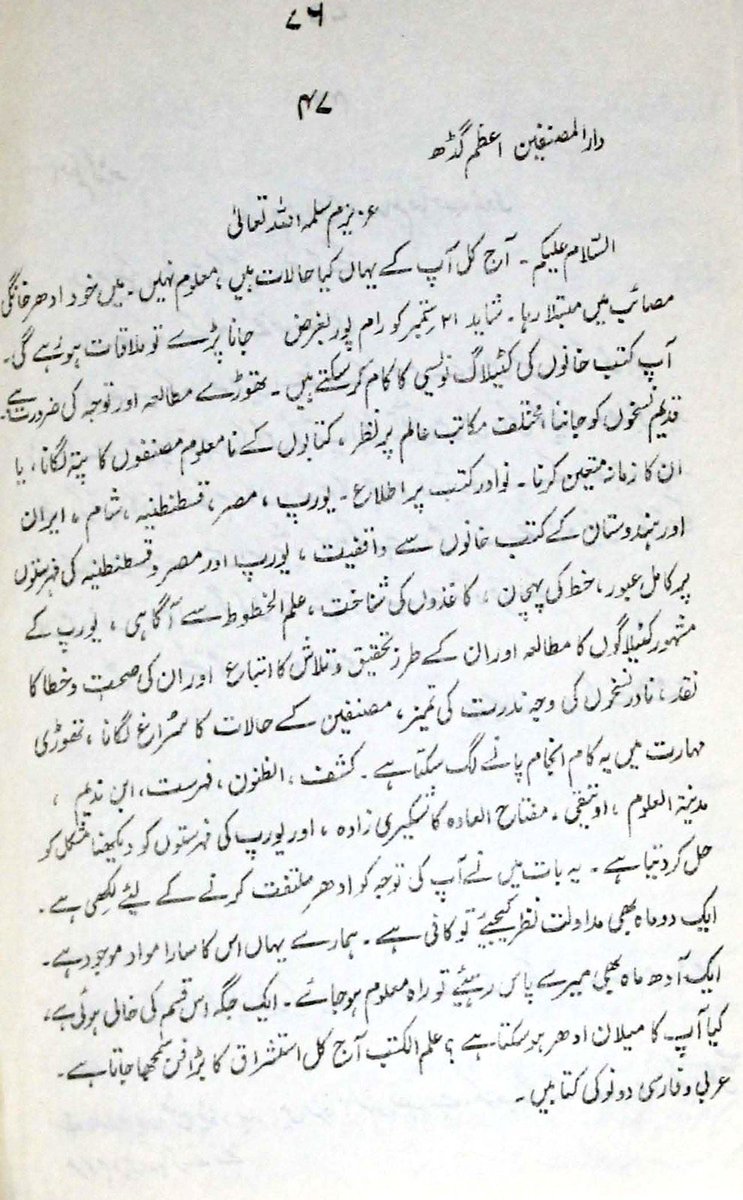 ۷۶
۴۷
دارالمصنفین اعظم گڈھ
عزیزم سلمہ اللہ تعالیٰ
السّلام علیکم ۔ آج کل آپ کے یہاں کیا حالات ہیں ، معلوم نہیں ۔ میں خود ادھر خانگی
مصائب میں مبتلا رہا ۔ شاید ۲۱ ستمبر کو رام پور بغرض جانا پڑے تو ملاقات ہوئے گی ۔
آپ کتب خانوں کی کٹیلاگ نویسی کا کام کر سکتے ہیں ۔ تھوڑے مطالعہ اور توجہ کی ضرورت ہے ۔
قدیم نسخوں کو جاننا ، مختلف مکاتب عالم پر نظر ، کتابوں کے نامعلوم مصنفوں کا پتہ لگانا ، یا
ان کا زمانہ متعین کرنا ۔ نوادر کتب پر اطلاع ۔ یورپ ، مصر ، قسطنطنیہ ، شام ، ایران
اور ہندوستان کے کتب خانوں سے واقفیت ، یورپ اور مصر و قسطنطنیہ کی فہرستوں
پر کامل عبور ، خط کی پہچان ، کاغذوں کی شناخت ، علم الخطوط سے آگاہی ، یورپ کے
مشہور کٹیلاگوں کا مطالعہ اور ان کے طرز تحقیق و تلاش کا اتباع اور ان کی صحت و خطا کا
نقد ، نادر نسخوں کی وجہ ندرت کی تمیز ، مصنفین کے حالات کا سُراغ لگانا ، تھوڑی
مہارت میں یہ کام انجام پانے لگ سکتا ہے ۔ کشف ، الظنون ، فہرست ، ابن ندیم ،
مدینۃ العلوم ، ۔ مفتاح العادہ ، اور یورپ کی فہرستوں کو دیکھنا مشکل کو
حل کر دیتا ہے ۔ یہ بات میں نے آپ کی توجہ کو ادھر ملتفت کرنے کے لئے لکھی ہے ۔
ایک دو ماہ بھی مداولت نظر کیجیئے تو کافی ہے ۔ ہمارے یہاں اس کا سارا مواد موجود ہے ۔
ایک آدھ ماہ بھی میرے پاس رہیئے تو راہ معلوم ہو جائے ۔ ایک جگہ اس قسم کی خالی ہوئی ہے ،
کیا آپ کا میلان ادھر ہو سکتا ہے ؟ علم الکتب آج کل استشراق کا بڑا فن سمجھا جاتا ہے ۔
عربی و فارسی دونو کی کتابیں ۔